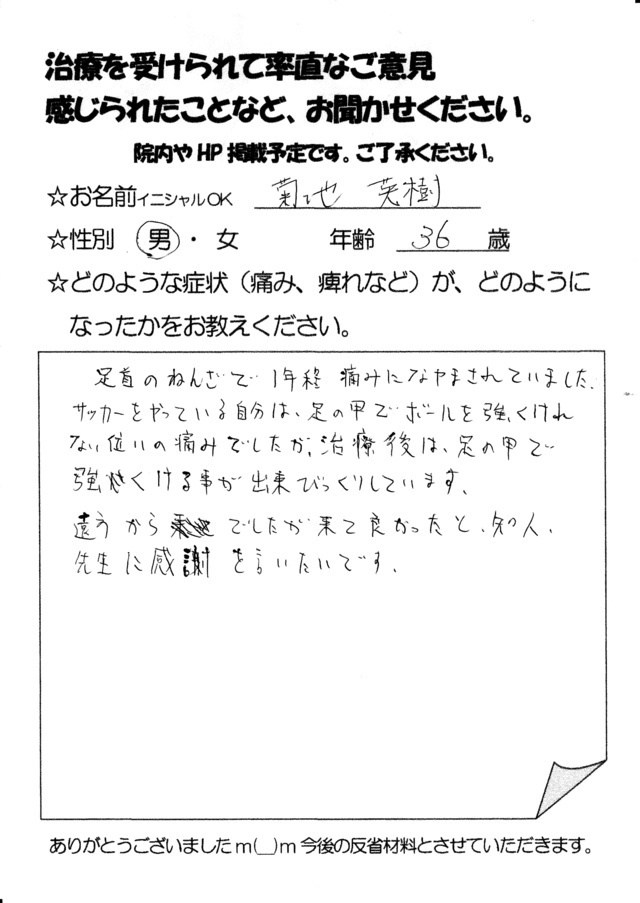 治療を受けられて率直なご意見
感じられたことなど、お聞かせください。
院内やHP掲載予定です。ご了承ください。
☆お名前イニシャルOK 菊池 英樹
☆性別 男・女 年齢 36 歳
☆どのような症状（痛み、痺れなど）が、どのように
なったかをお教えください。
足首のねんざで1年程痛みになやまされていました。
サッカーをやっている自分は、足の甲でボールを強くけれ
ない位いの痛みでしたが、治療後は、足の甲で
強くける事が出来びっくりしています。
遠うからでしたが来て良かったと、知人、
先生に感謝を言いたいです。
ありがとうございましたm(__)m今後の反省材料とさせていただきます。